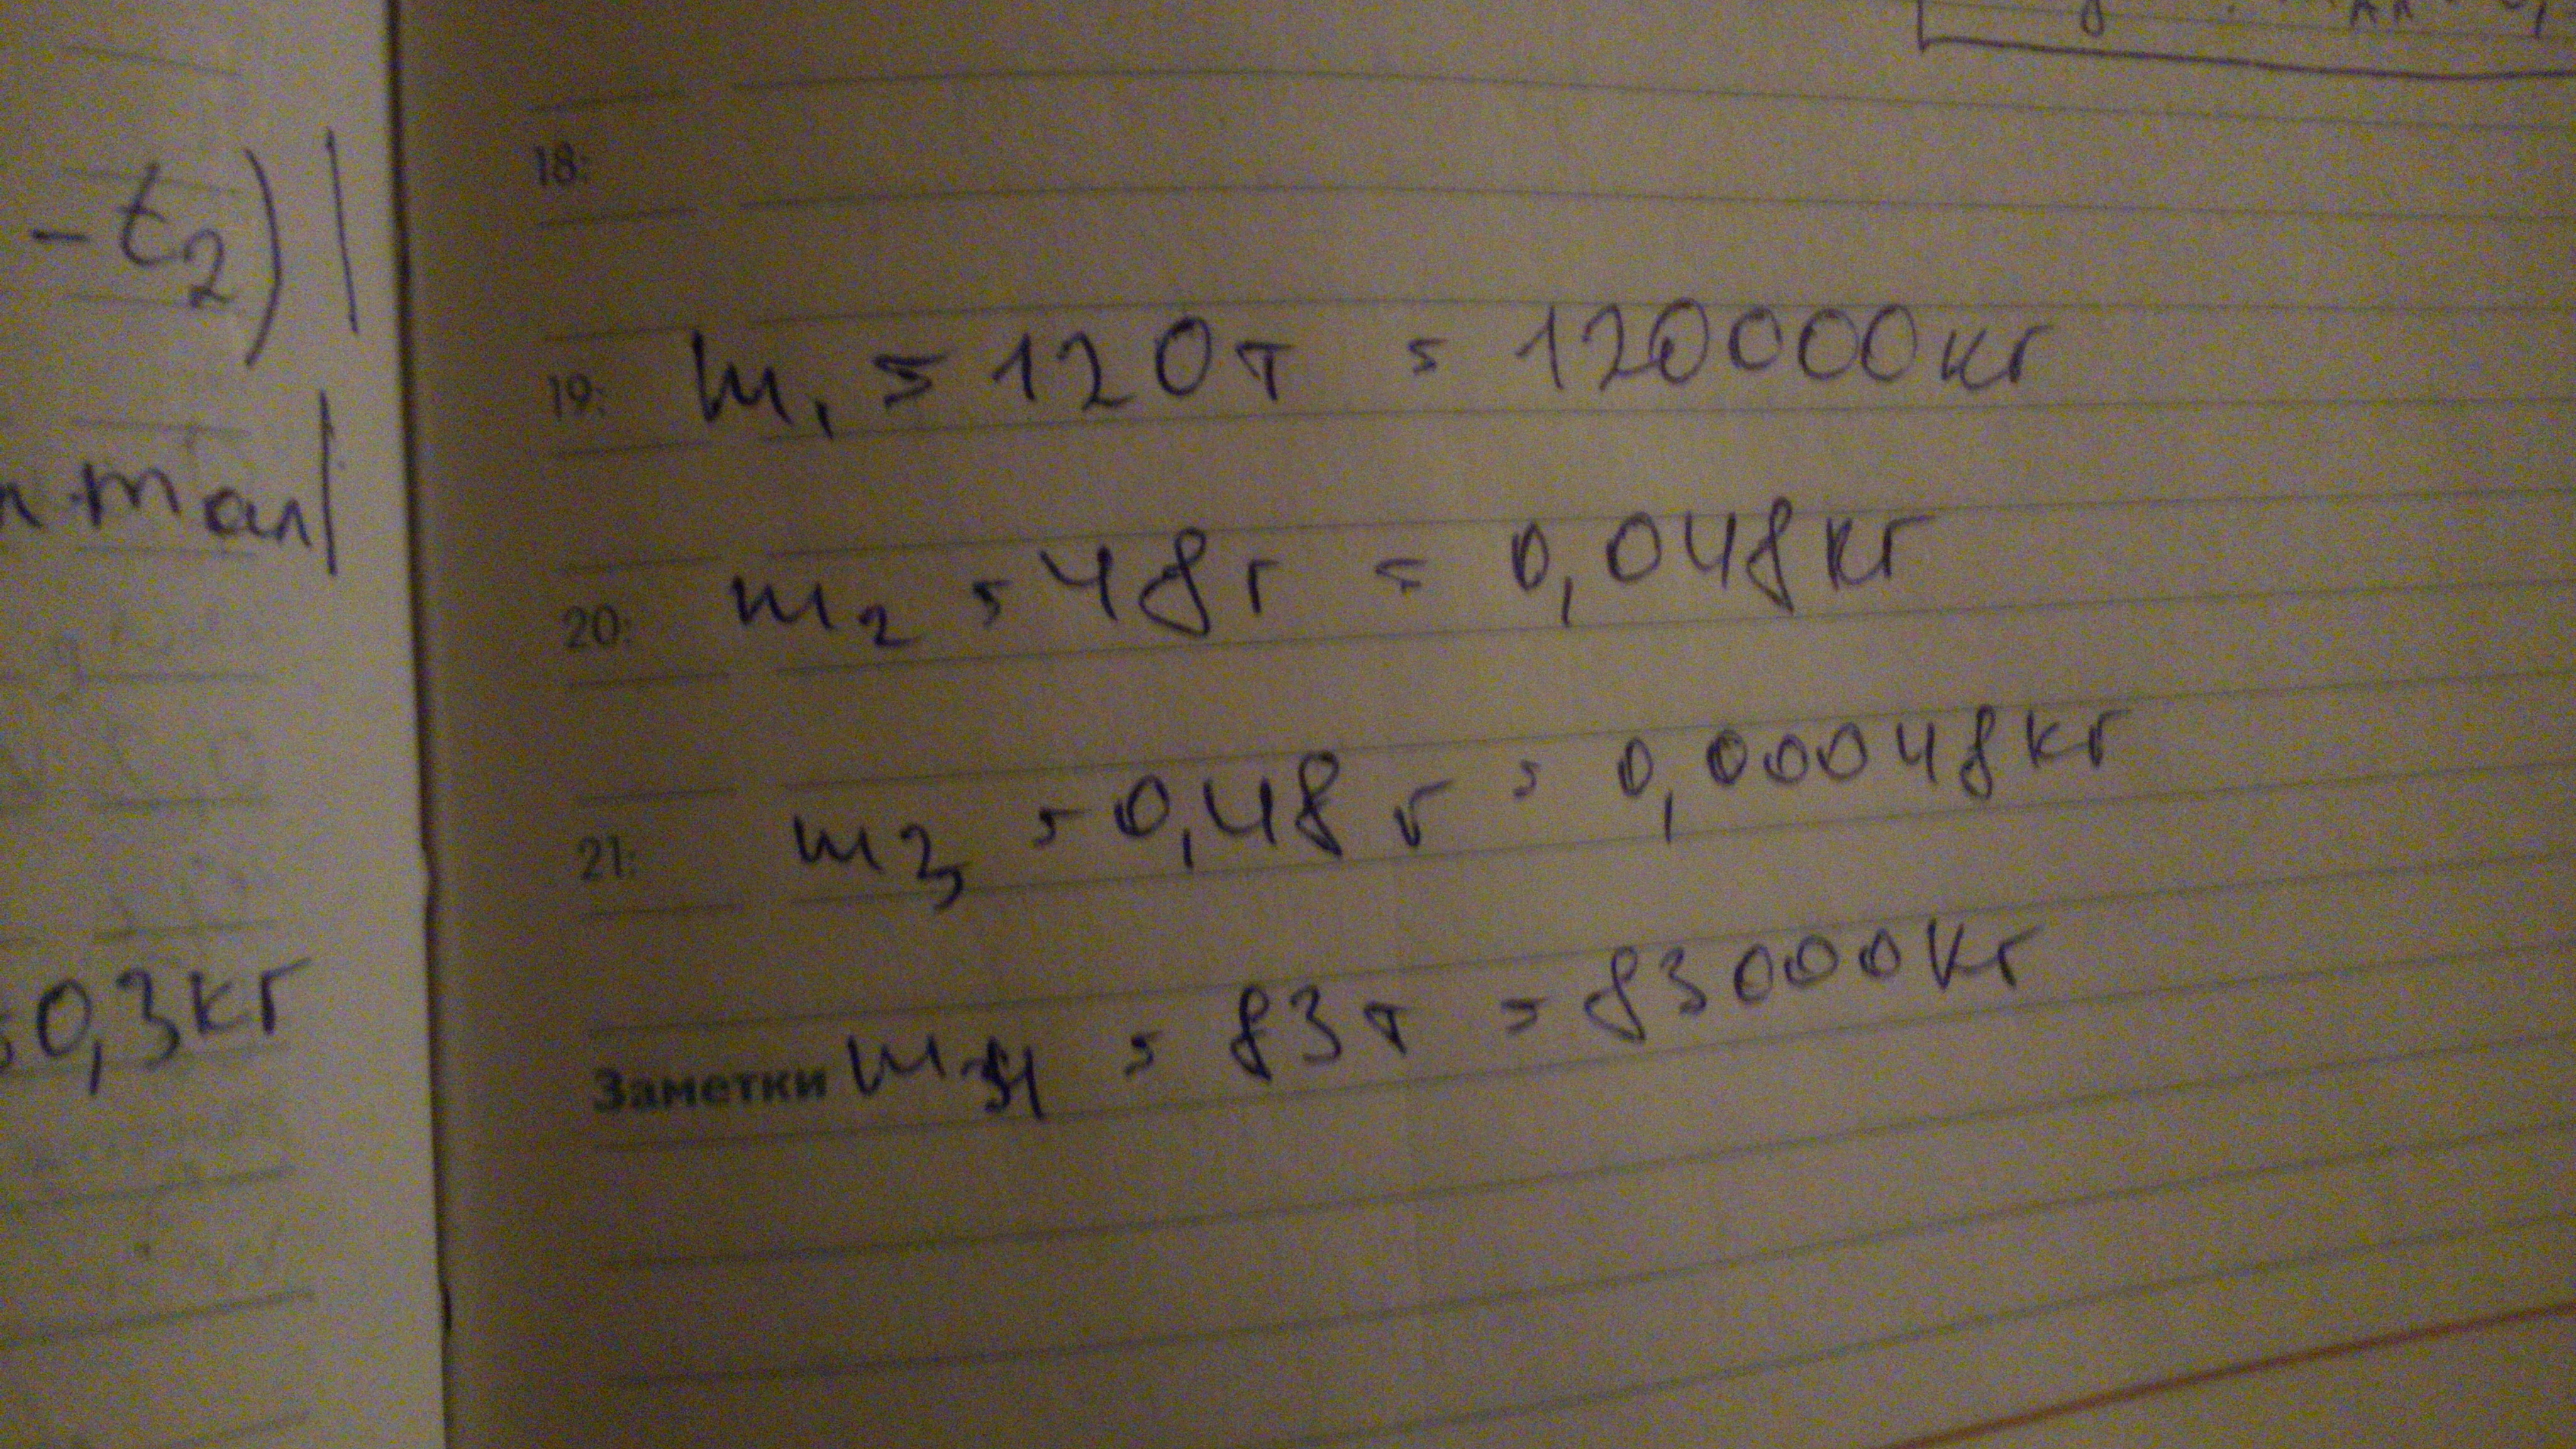 - t₂)|
18:
19: m₁ = 120т = 120000кг
mал|
20: m₂ = 48г = 0,048кг
21: m₃ = 0,48г = 0,00048кг
=0,3кг
Заметки m₄ = 83т = 83000кг